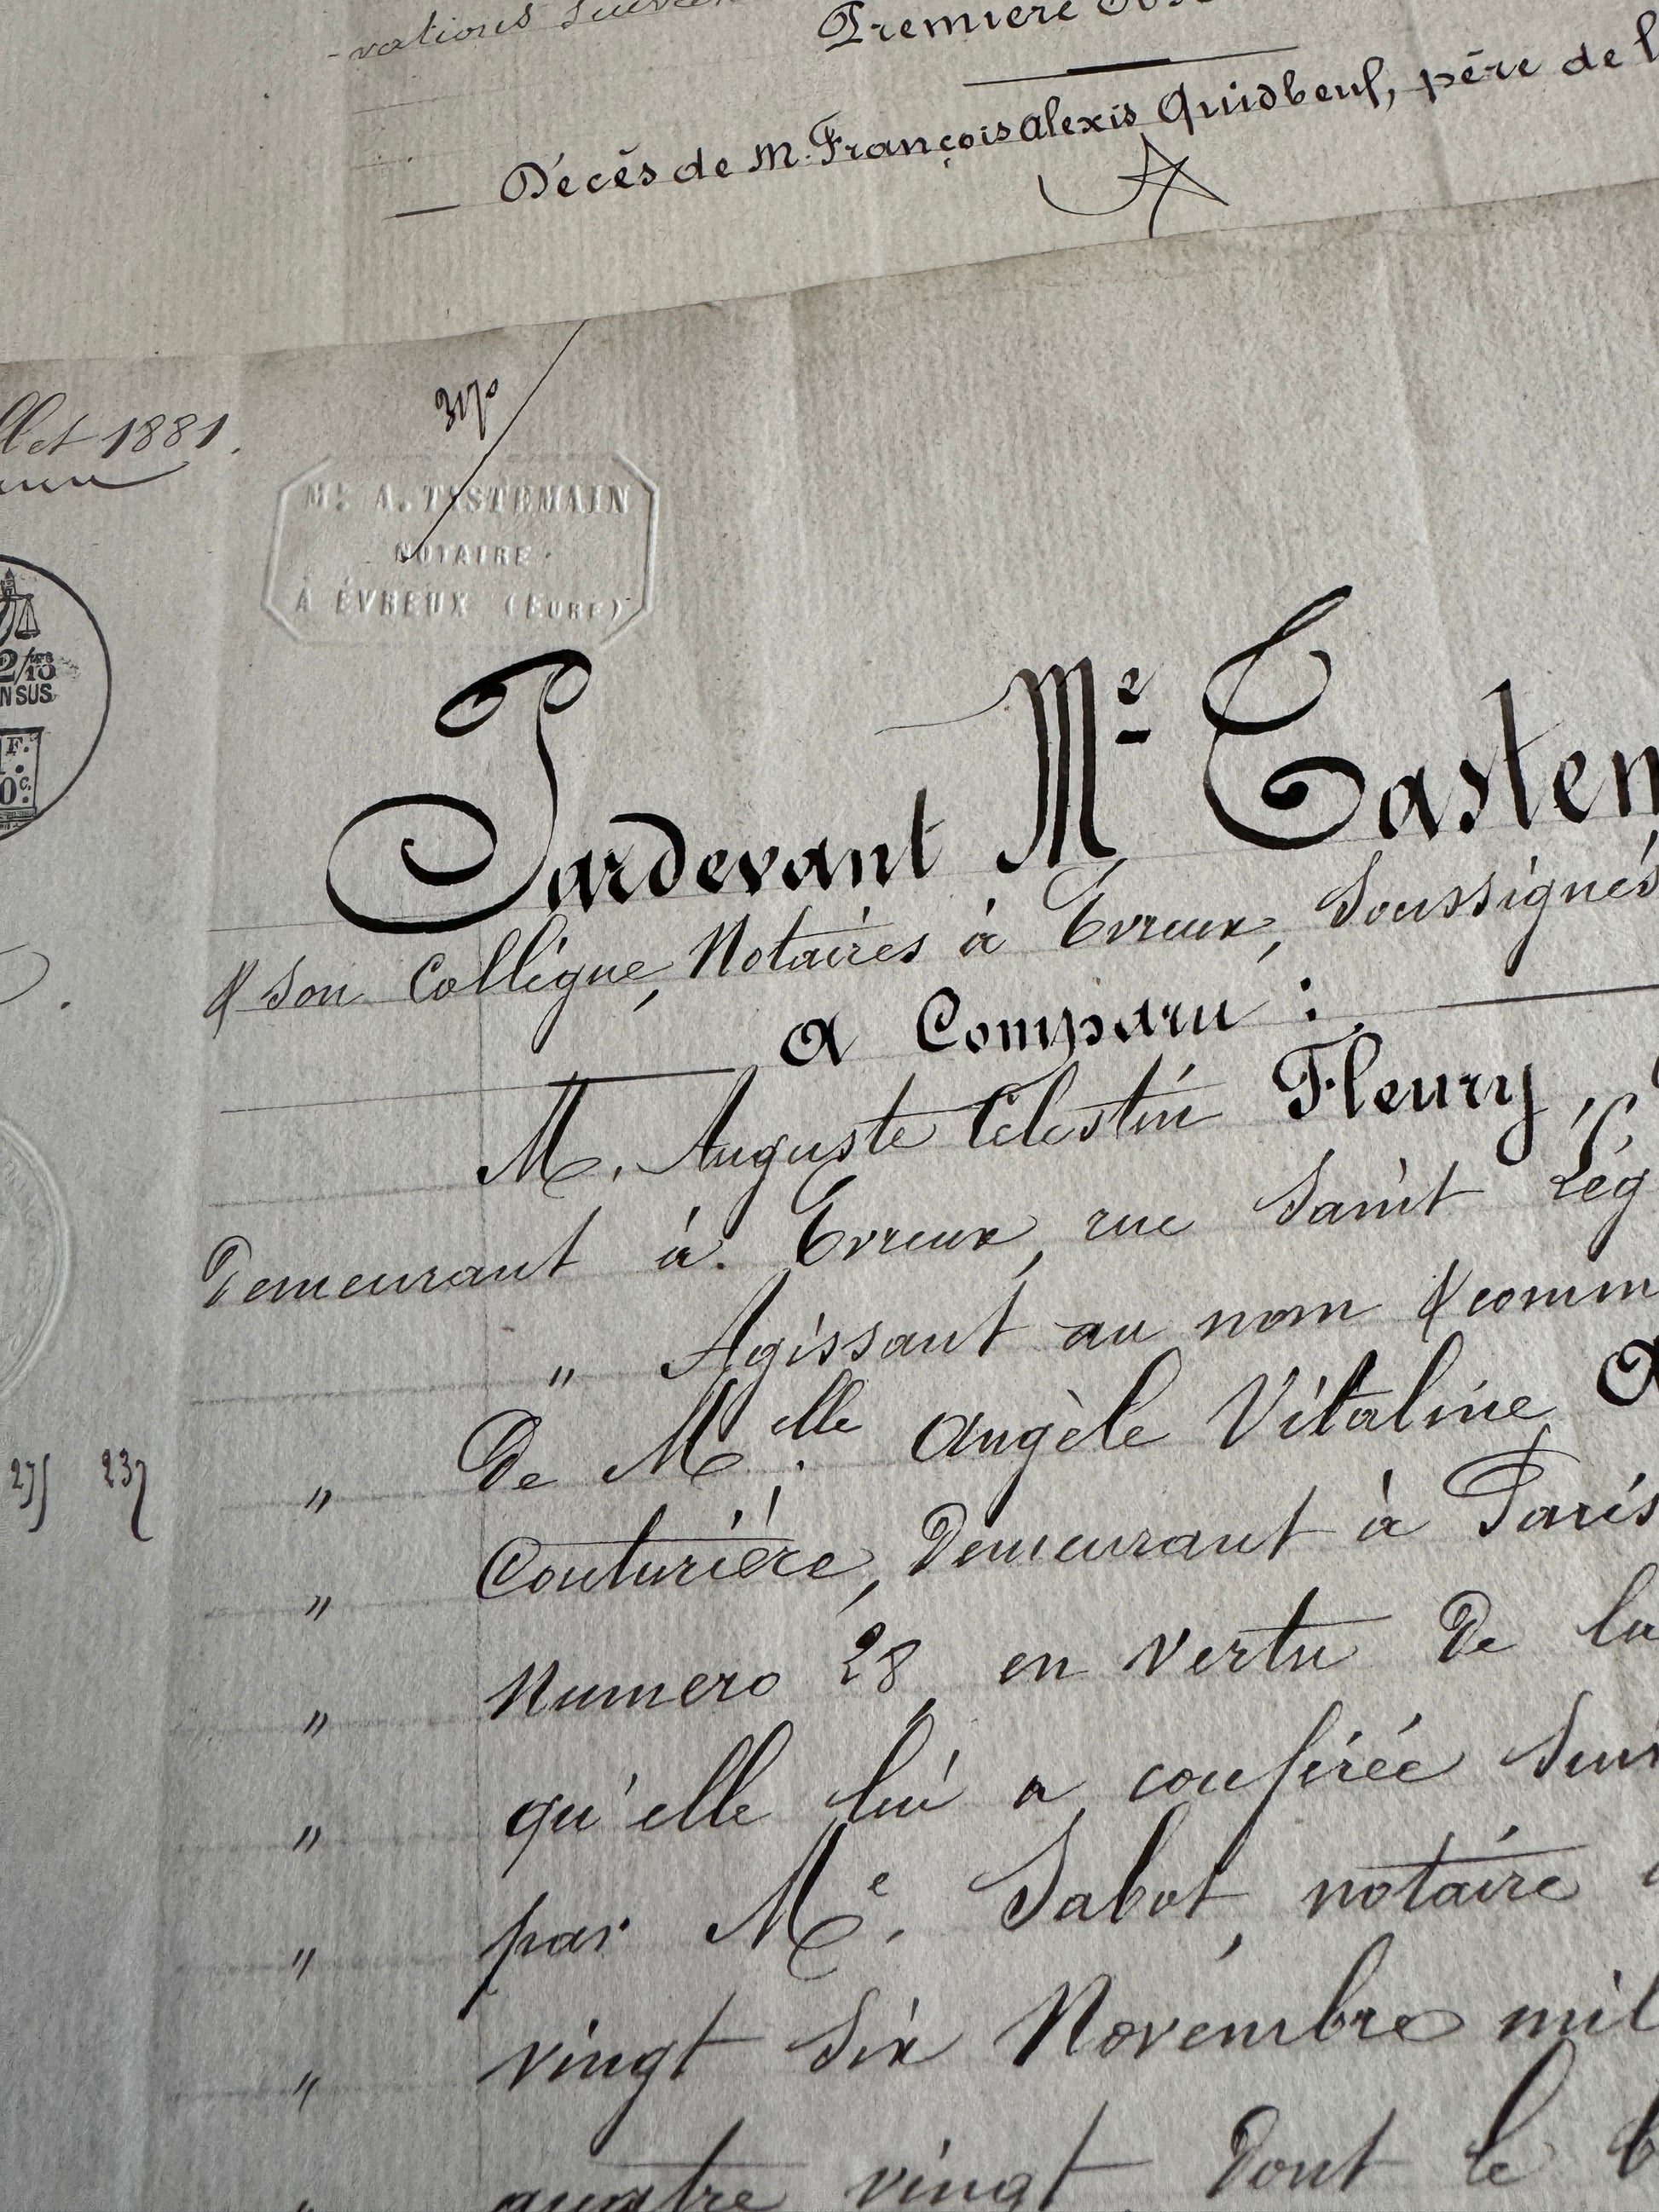 -vations suivan
Première
Décès de M. François Alexis Quidbeuf, père de l
llet 1881.
Me A. TISTEMAIN
NOTAIRE
À ÉVREUX (EURE)
2/10
EN SUS
F.
0c.
Pardevant Me Tastem
& son Collègue, Notaires à Evreux, Soussignés
a Comparu :
M. Auguste Célestin Fleury,
Demeurant à Evreux, rue Saint Lég
" Agissant au nom & comm
" De Melle Angèle Vitaline
275 237
" Couturière, Demeurant à Paris
" Numero 28, en vertu de la
" qu'elle lui a conférée sui
" par Me Sabot, notaire
" vingt six Novembre mil
" quatre vingt, Dont le b